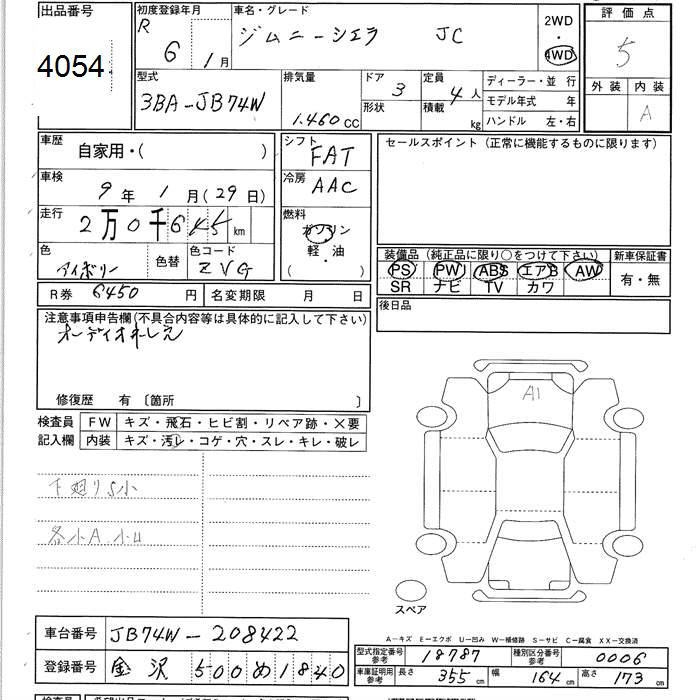 出品番号
4054
初度登録年月
R 6 1月
車名・グレード
ジムニーシエラ JC
2WD
・
4WD
評価点
5
外装 内装
A
型式
3BA-JB74W
排気量
1.460 CC
ドア 3
形状
定員 4 人
積載 kg
ディーラー・並行
モデル年式 年
ハンドル 左・右
車歴
自家用・( )
車検
9年 1月(29日)
走行
2万0千6 km
色
アイボリー
色替
色コード
ZVG
R券 6450円
名変期限 月 日
シフト
FAT
冷房
AAC
燃料
ガソリン
軽・油
( )
セールスポイント(正常に機能するものに限ります)
装備品(純正品に限り○をつけて下さい)
PS PW ABS エアB AW
SR ナビ TV カワ
新車保証書
有・無
後日品
注意事項申告欄(不具合内容等は具体的に記入して下さい)
オーディオ
修復歴 有〔箇所 〕
検査員
記入欄
FW キズ・飛石・ヒビ割・リペア跡・×要
内装 キズ・汚レ・コゲ・穴・スレ・キレ・破レ
下廻りS小
各小A 小U
A1
スペア
A-キズ E-エクボ U-凹み W-補修跡 S-サビ C-腐食 XX-交換済
車台番号 JB74W-208422
登録番号 金沢 500め1840
型式指定番号
参考
18787
種別区分番号
参考
0006
車庫証明用
参考
長さ 355cm 幅 164cm 高さ 173cm